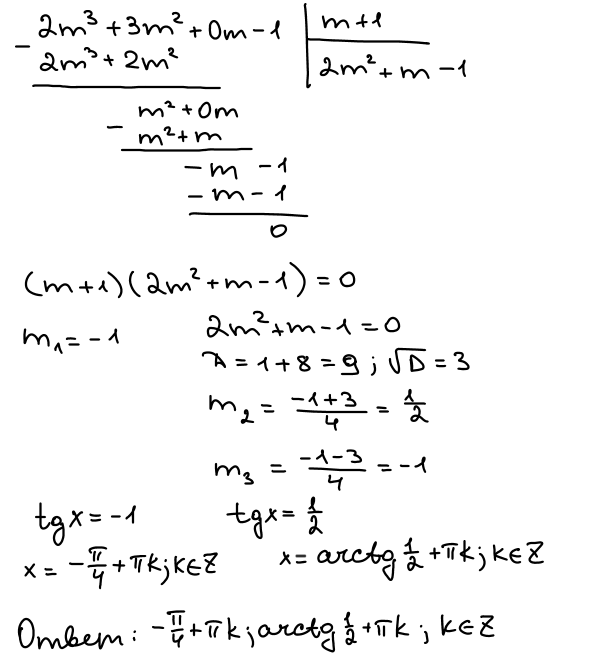 2m³ + 3m² + 0m - 1 | m + 1
- 2m³ + 2m² | 2m² + m - 1
m² + 0m
- m² + m
- m - 1
- m - 1
0
(m + 1)(2m² + m - 1) = 0
m₁ = -1 2m² + m - 1 = 0
D = 1 + 8 = 9 ; √D = 3
m₂ = (-1+3)/4 = 1/2
m₃ = (-1-3)/4 = -1
tg x = -1 tg x = 1/2
x = -π/4 + πk; k∈Z x = arctg 1/2 + πk; k∈Z
Ответ: -π/4 + πk; arctg 1/2 + πk ; k∈Z